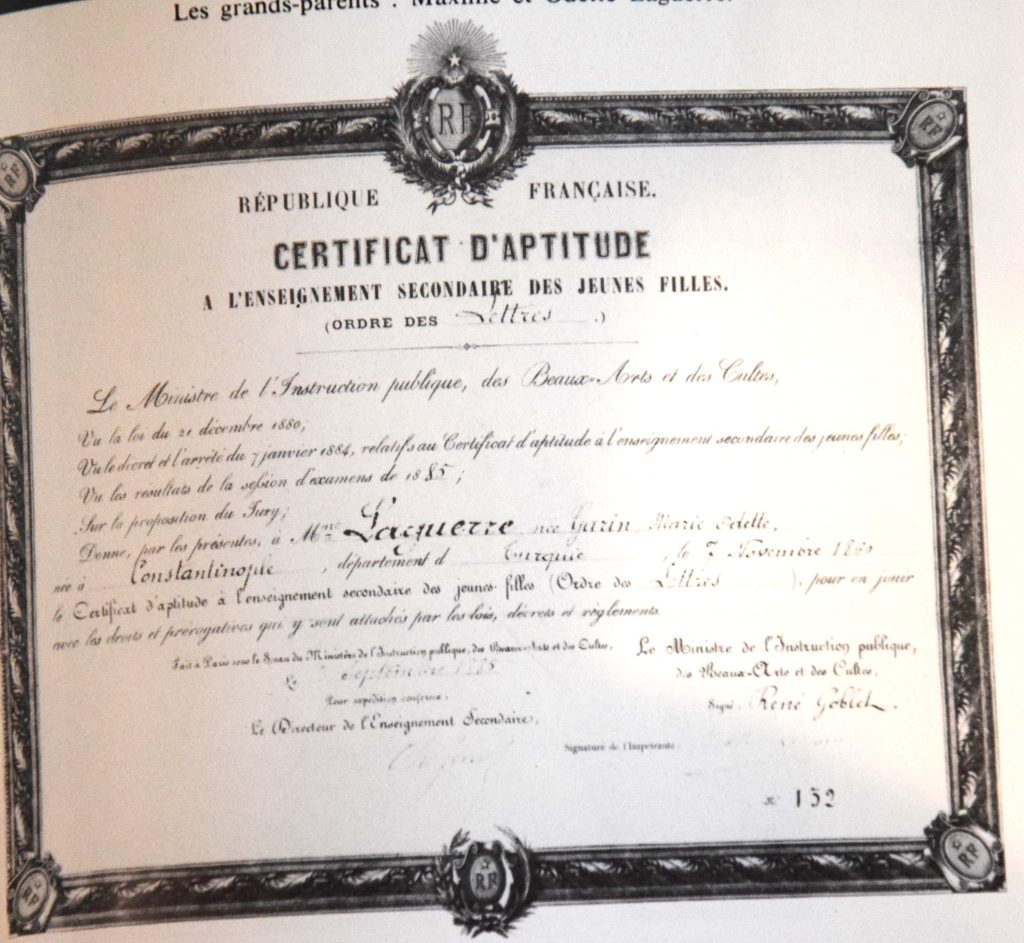 Les grands-parents : Maxime et Odette Laguerre.
RF
RF
RF
RÉPUBLIQUE FRANÇAISE.
CERTIFICAT D'APTITUDE
A L'ENSEIGNEMENT SECONDAIRE DES JEUNES FILLES.
(ORDRE DES Lettres)
Le Ministre de l'Instruction publique, des Beaux-Arts et des Cultes,
Vu la loi du 21 décembre 1880;
Vu le décret et l'arrêté du 7 janvier 1884, relatifs au Certificat d'aptitude à l'enseignement secondaire des jeunes filles;
Vu les résultats de la session d'examens de 1885;
Sur la proposition du Jury;
Donne, par les présentes, à Mme Laguerre née Garin, Marie Odette,
née à Constantinople, département d Turquie, le 7 Novembre 1860
le Certificat d'aptitude à l'enseignement secondaire des jeunes filles (Ordre des Lettres), pour en jouir
avec les droits et prérogatives qui y sont attachés par les lois, décrets et règlements.
Fait à Paris sous le Sceau du Ministère de l'Instruction publique, des Beaux-Arts et des Cultes,
Le Septembre 1885
Pour expédition conforme,
Le Directeur de l'Enseignement Secondaire,
Le Ministre de l'Instruction publique,
des Beaux-Arts et des Cultes,
Signé : René Goblet.
Signature de l'Impétrante :
N° 132
RF
RF
RF